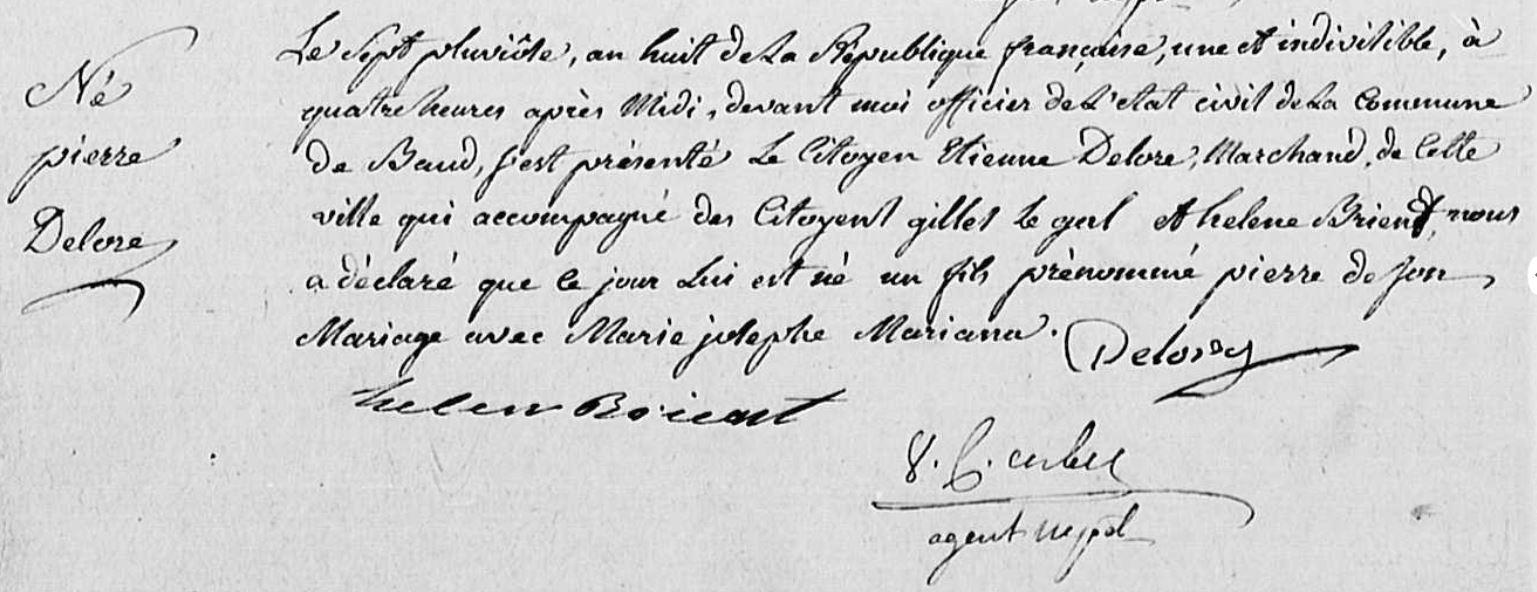 Né
pierre
Delore
Le Sept pluviôse, an huit de La République française, une et indivisible, à
quatre heures après Midi, devant moi officier de L'etat civil de La Commune
de Baud, s'est présenté Le Citoyen Etienne Delore, Marchand, de Cette
ville qui accompagné des Citoyens gilles Le gal et helene Brient, nous
a déclaré que ce jour Lui est né un fils prénommé pierre de son
Mariage avec Marie josephe Mariana.
helene Brient
agent